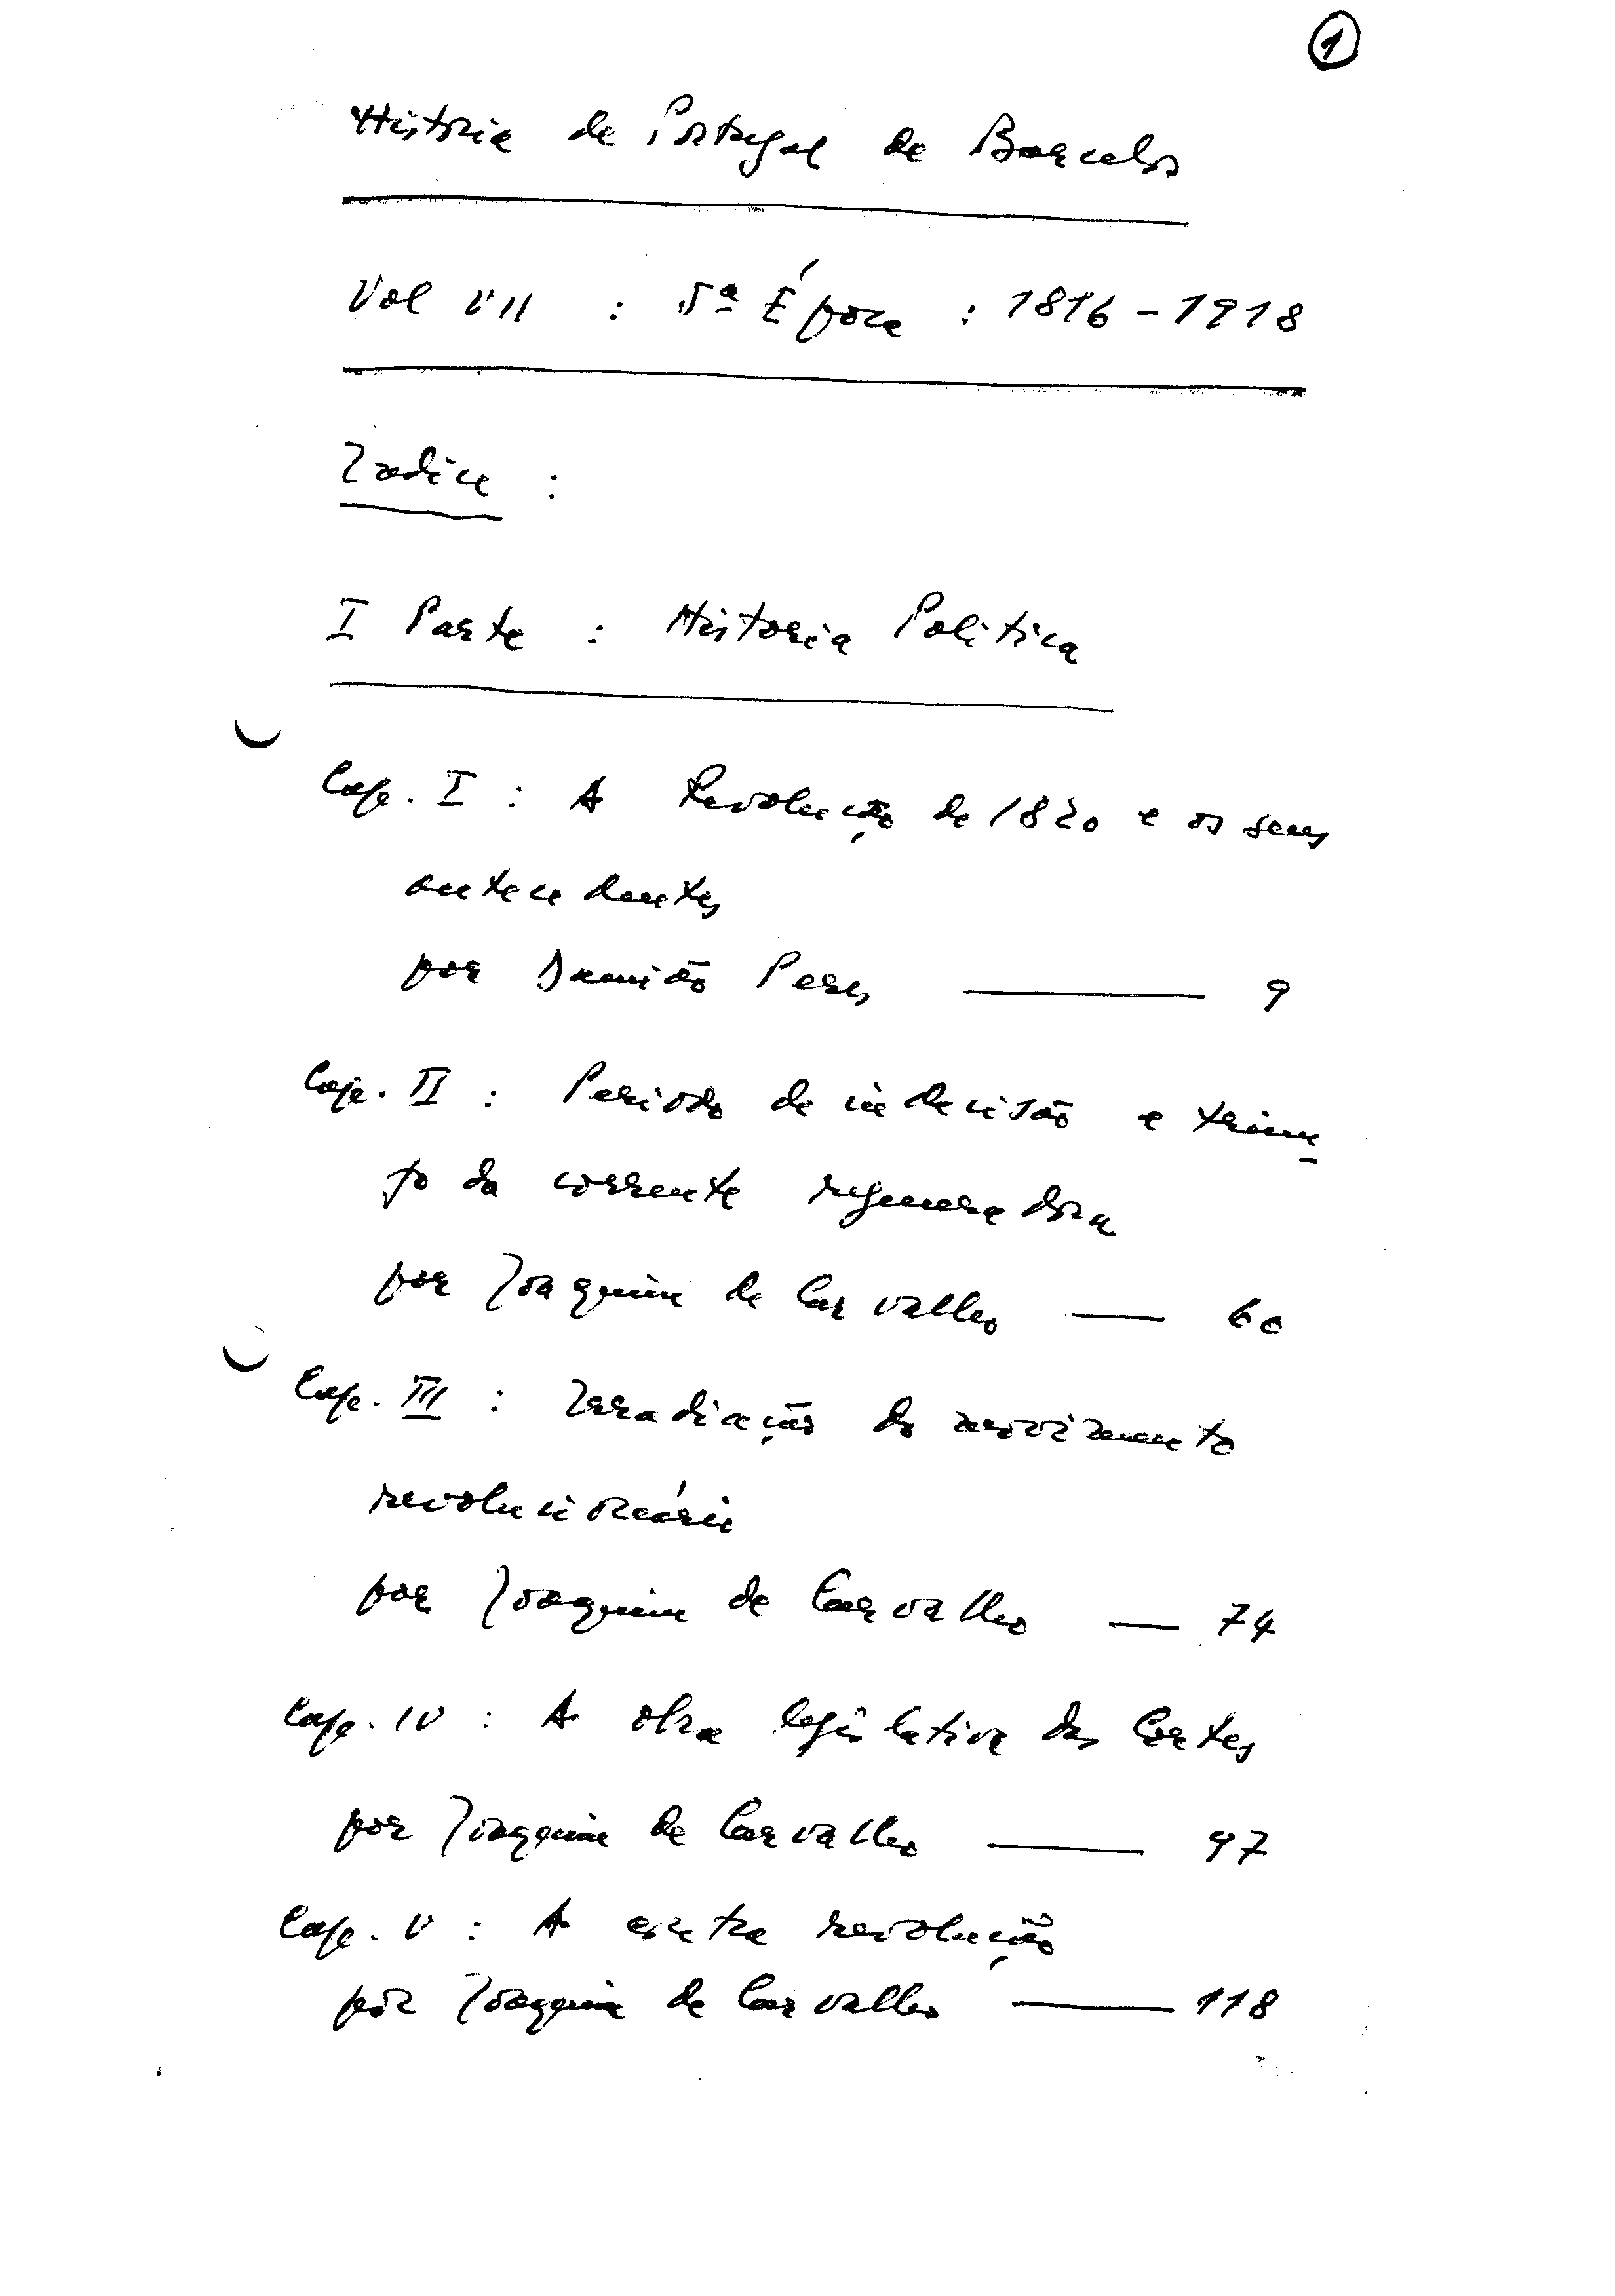 1
Historia de Portugal de Barcelos
Vol VII : 5ª Época : 1816 - 1918
Indice :
I Parte : Historia Politica
Cap. I : A Revolução de 1820 e os seus
antecedentes
por Damião Peres — 9
Cap. II : Periodo de indecisão e triun
fo da corrente regeneradora
por Joaquim de Carvalho — 60
Cap. III : Irradiação do movimento
revolucionário
por Joaquim de Carvalho — 74
Cap. IV : A obra legislativa das Cortes
por Joaquim de Carvalho — 97
Cap. V : A contra revolução
por Joaquim de Carvalho — 118